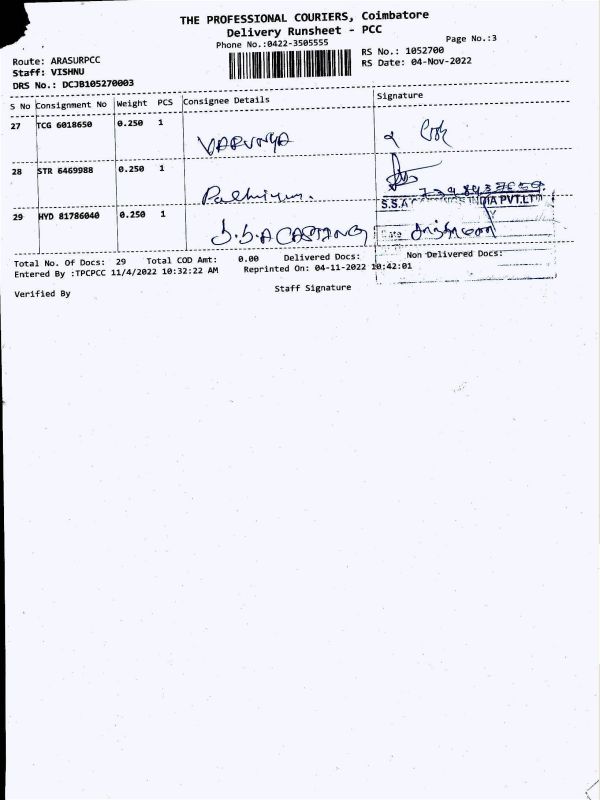 THE PROFESSIONAL COURIERS, Coimbatore
Delivery Runsheet - PCC
Phone No.:0422-3505555
Page No.:3
Route: ARASURPCC
Staff: VISHNU
DRS No.: DCJB105270003
RS No.: 1052700
RS Date: 04-Nov-2022
S No Consignment No Weight PCS Consignee Details Signature
27 TCG 6018650 0.250 1
VARUNYA
28 STR 6469988 0.250 1
29 HYD 81786040 0.250 1
S.S.A CASTING
S.S.A INDIA PVT.LTD
Total No. Of Docs: 29 Total COD Amt: 0.00 Delivered Docs: Non Delivered Docs:
Entered By :TPCPCC 11/4/2022 10:32:22 AM Reprinted On: 04-11-2022 10:42:01
Verified By Staff Signature